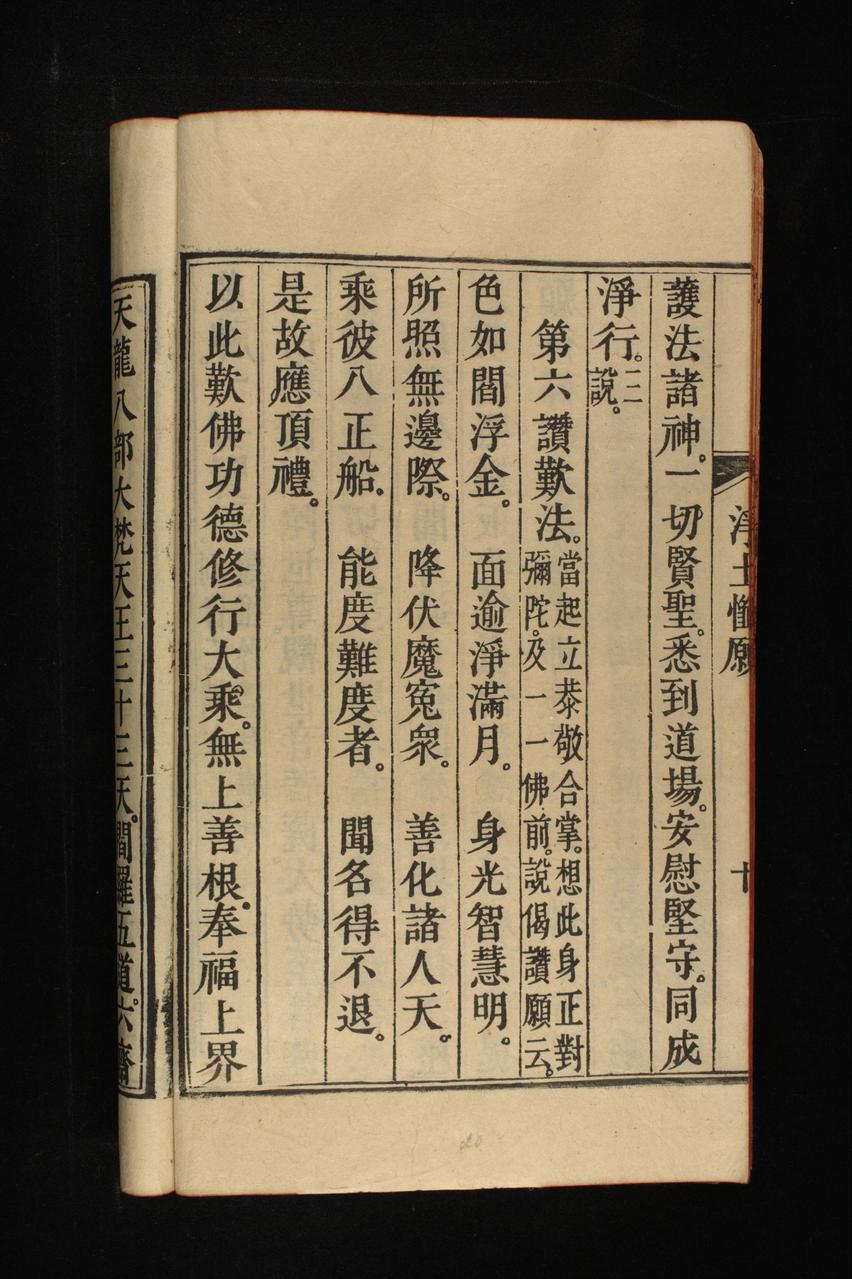 淨土懺願 十
護法諸神。一切賢聖。悉到道場。安慰堅守。同成
淨行。三說。
第六讚歎法。當起立恭敬合掌。想此身正對彌陀。及一一佛前。說偈讚願云。
色如閻浮金。 面逾淨滿月。 身光智慧明。
所照無邊際。 降伏魔冤衆。 善化諸人天。
乘彼八正船。 能度難度者。 聞名得不退。
是故應頂禮。
以此歎佛功德修行大乘。無上善根。奉福上界
天龍八部大梵天王三十三天。閻羅五道。六齋